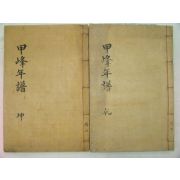 甲峰年譜 乾
甲峰年譜 坤